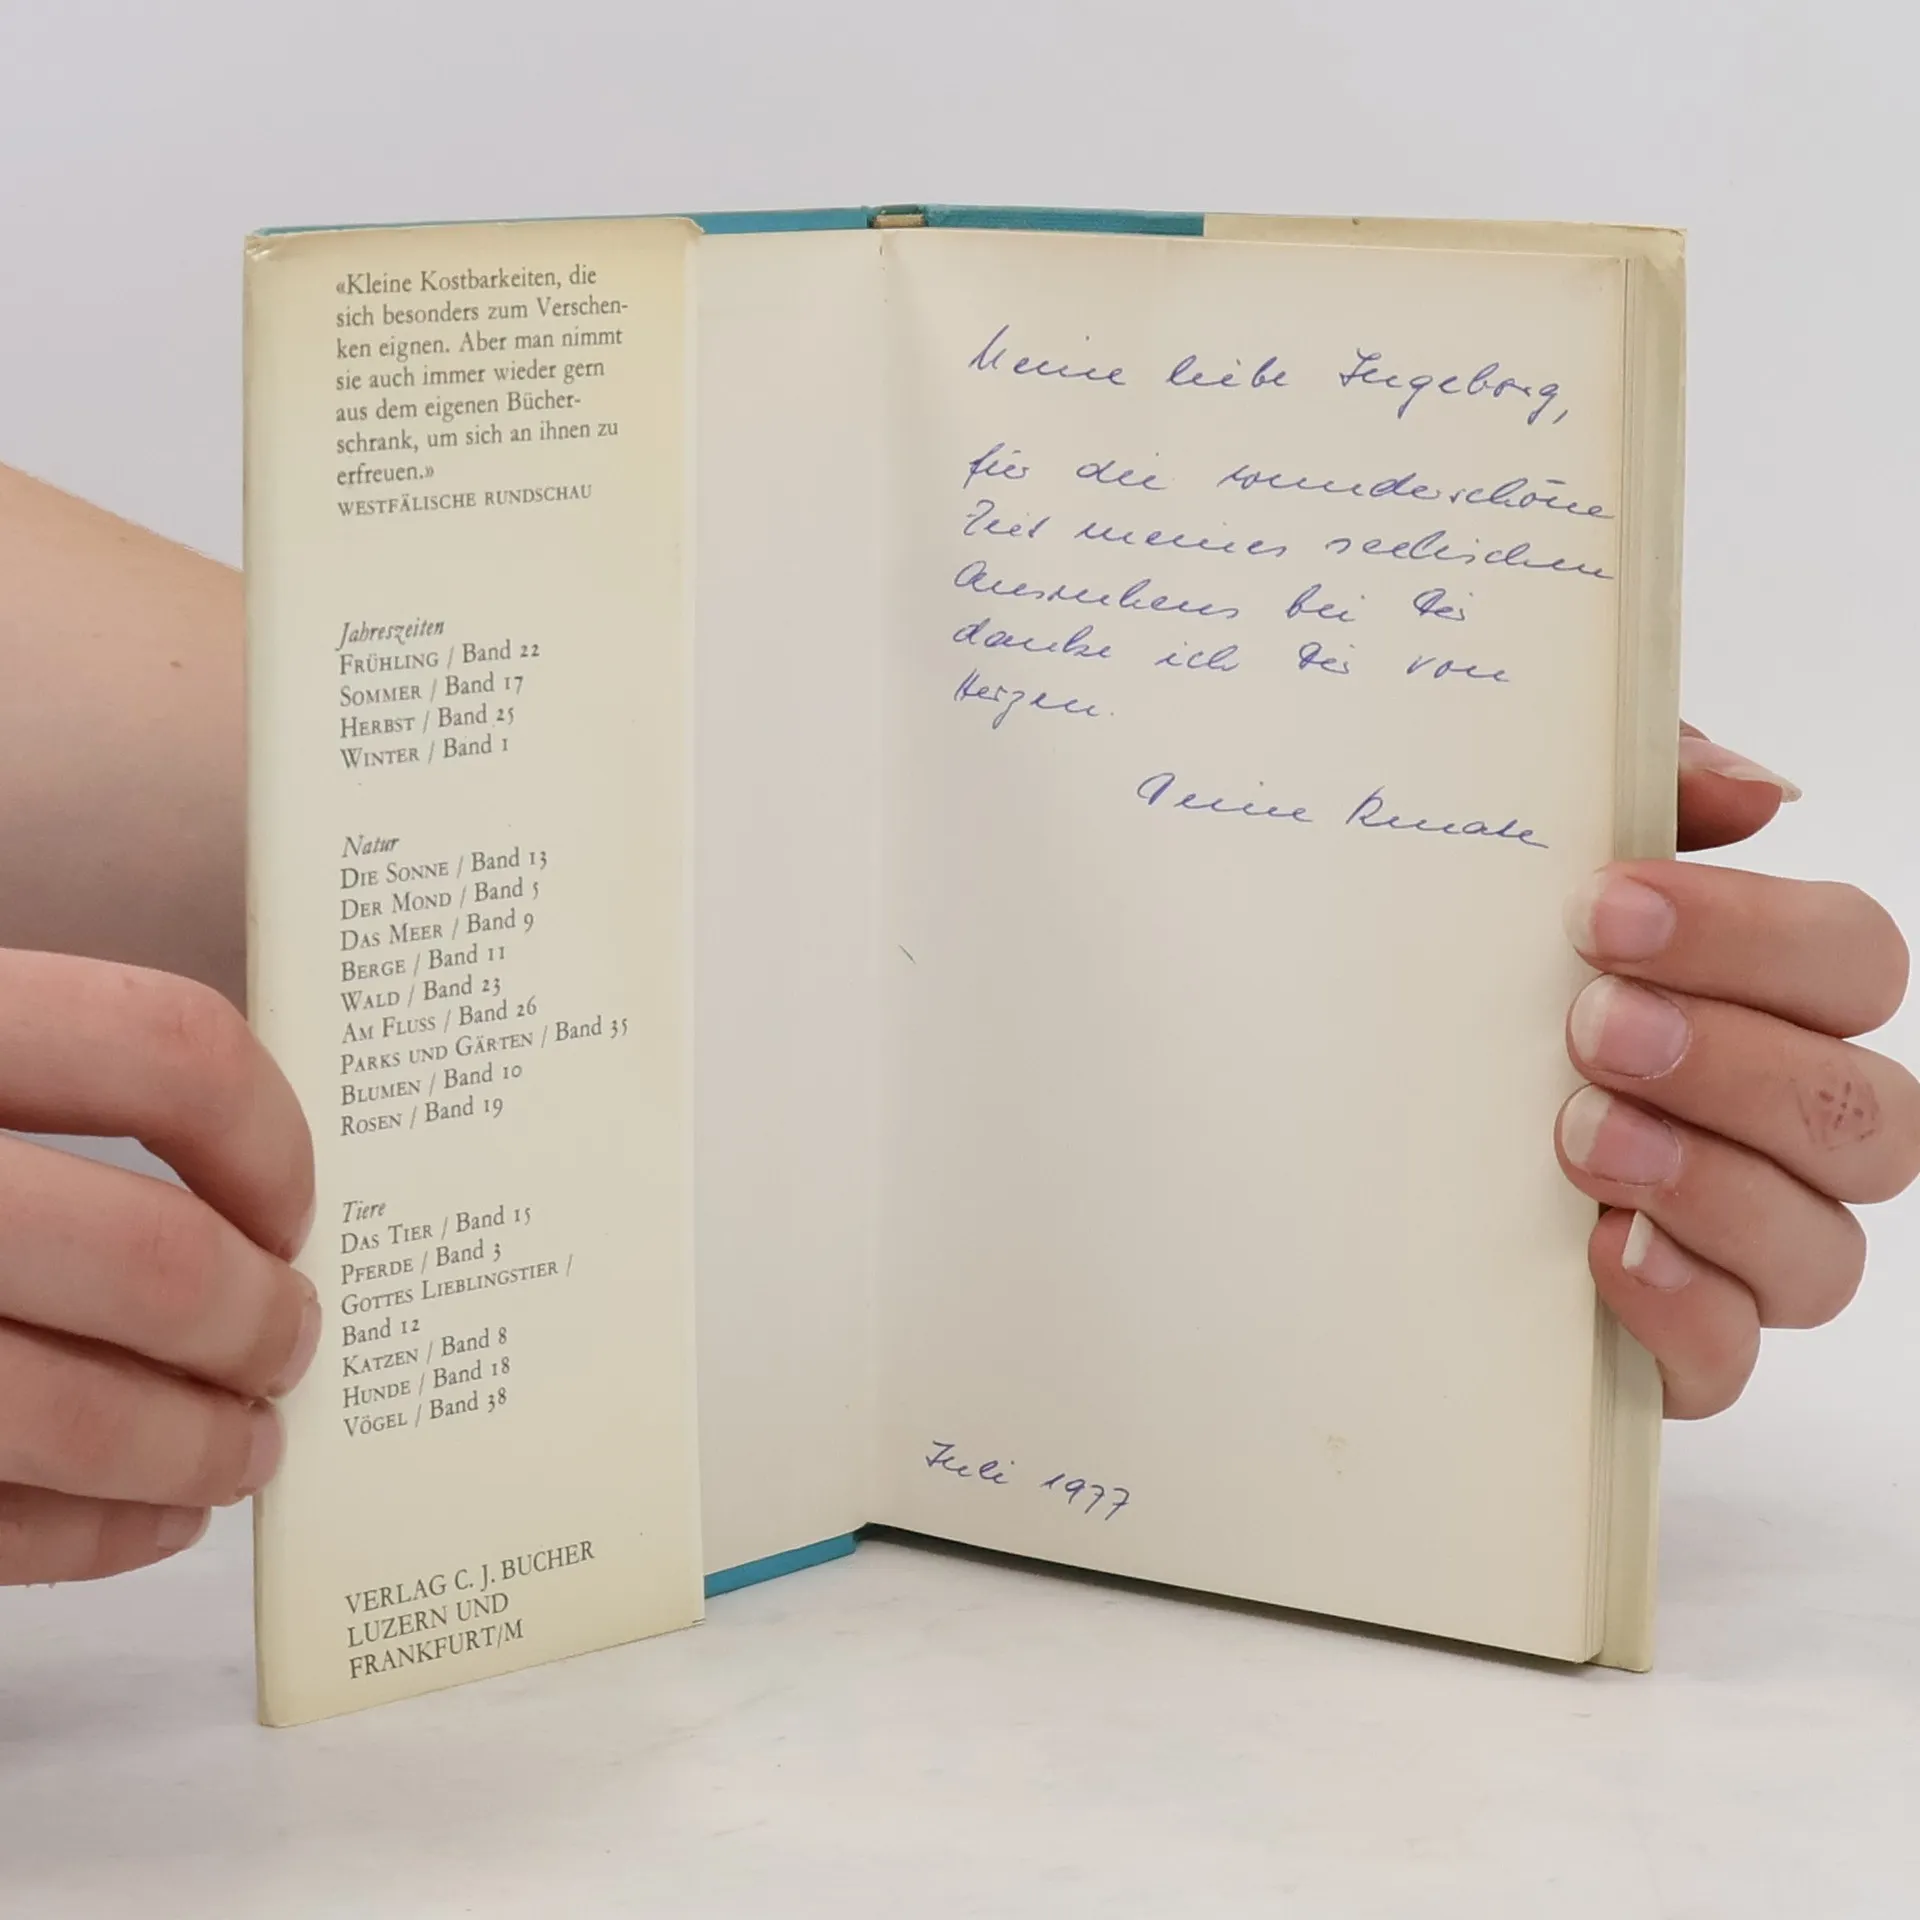 «Kleine Kostbarkeiten, die
sich besonders zum Verschen-
ken eignen. Aber man nimmt
sie auch immer wieder gern
aus dem eigenen Bücher-
schrank, um sich an ihnen zu
erfreuen.»
WESTFÄLISCHE RUNDSCHAU
Jahreszeiten
FRÜHLING / Band 22
SOMMER / Band 17
HERBST / Band 25
WINTER / Band 1
Natur
DIE SONNE / Band 13
DER MOND / Band 5
DAS MEER / Band 9
BERGE / Band 11
WALD / Band 23
AM FLUSS / Band 26
PARKS UND GÄRTEN / Band 35
BLUMEN / Band 10
ROSEN / Band 19
Tiere
DAS TIER / Band 15
PFERDE / Band 3
GOTTES LIEBLINGSTIER /
Band 12
KATZEN / Band 8
HUNDE / Band 18
VÖGEL / Band 38
VERLAG C. J. BUCHER
LUZERN UND
FRANKFURT/M
Meine liebe Ingeborg,
für die wunderschöne
Zeit meines seelischen
Ausruhens bei Dir
danke ich Dir von
Herzen.
Deine Renate
Juli 1977